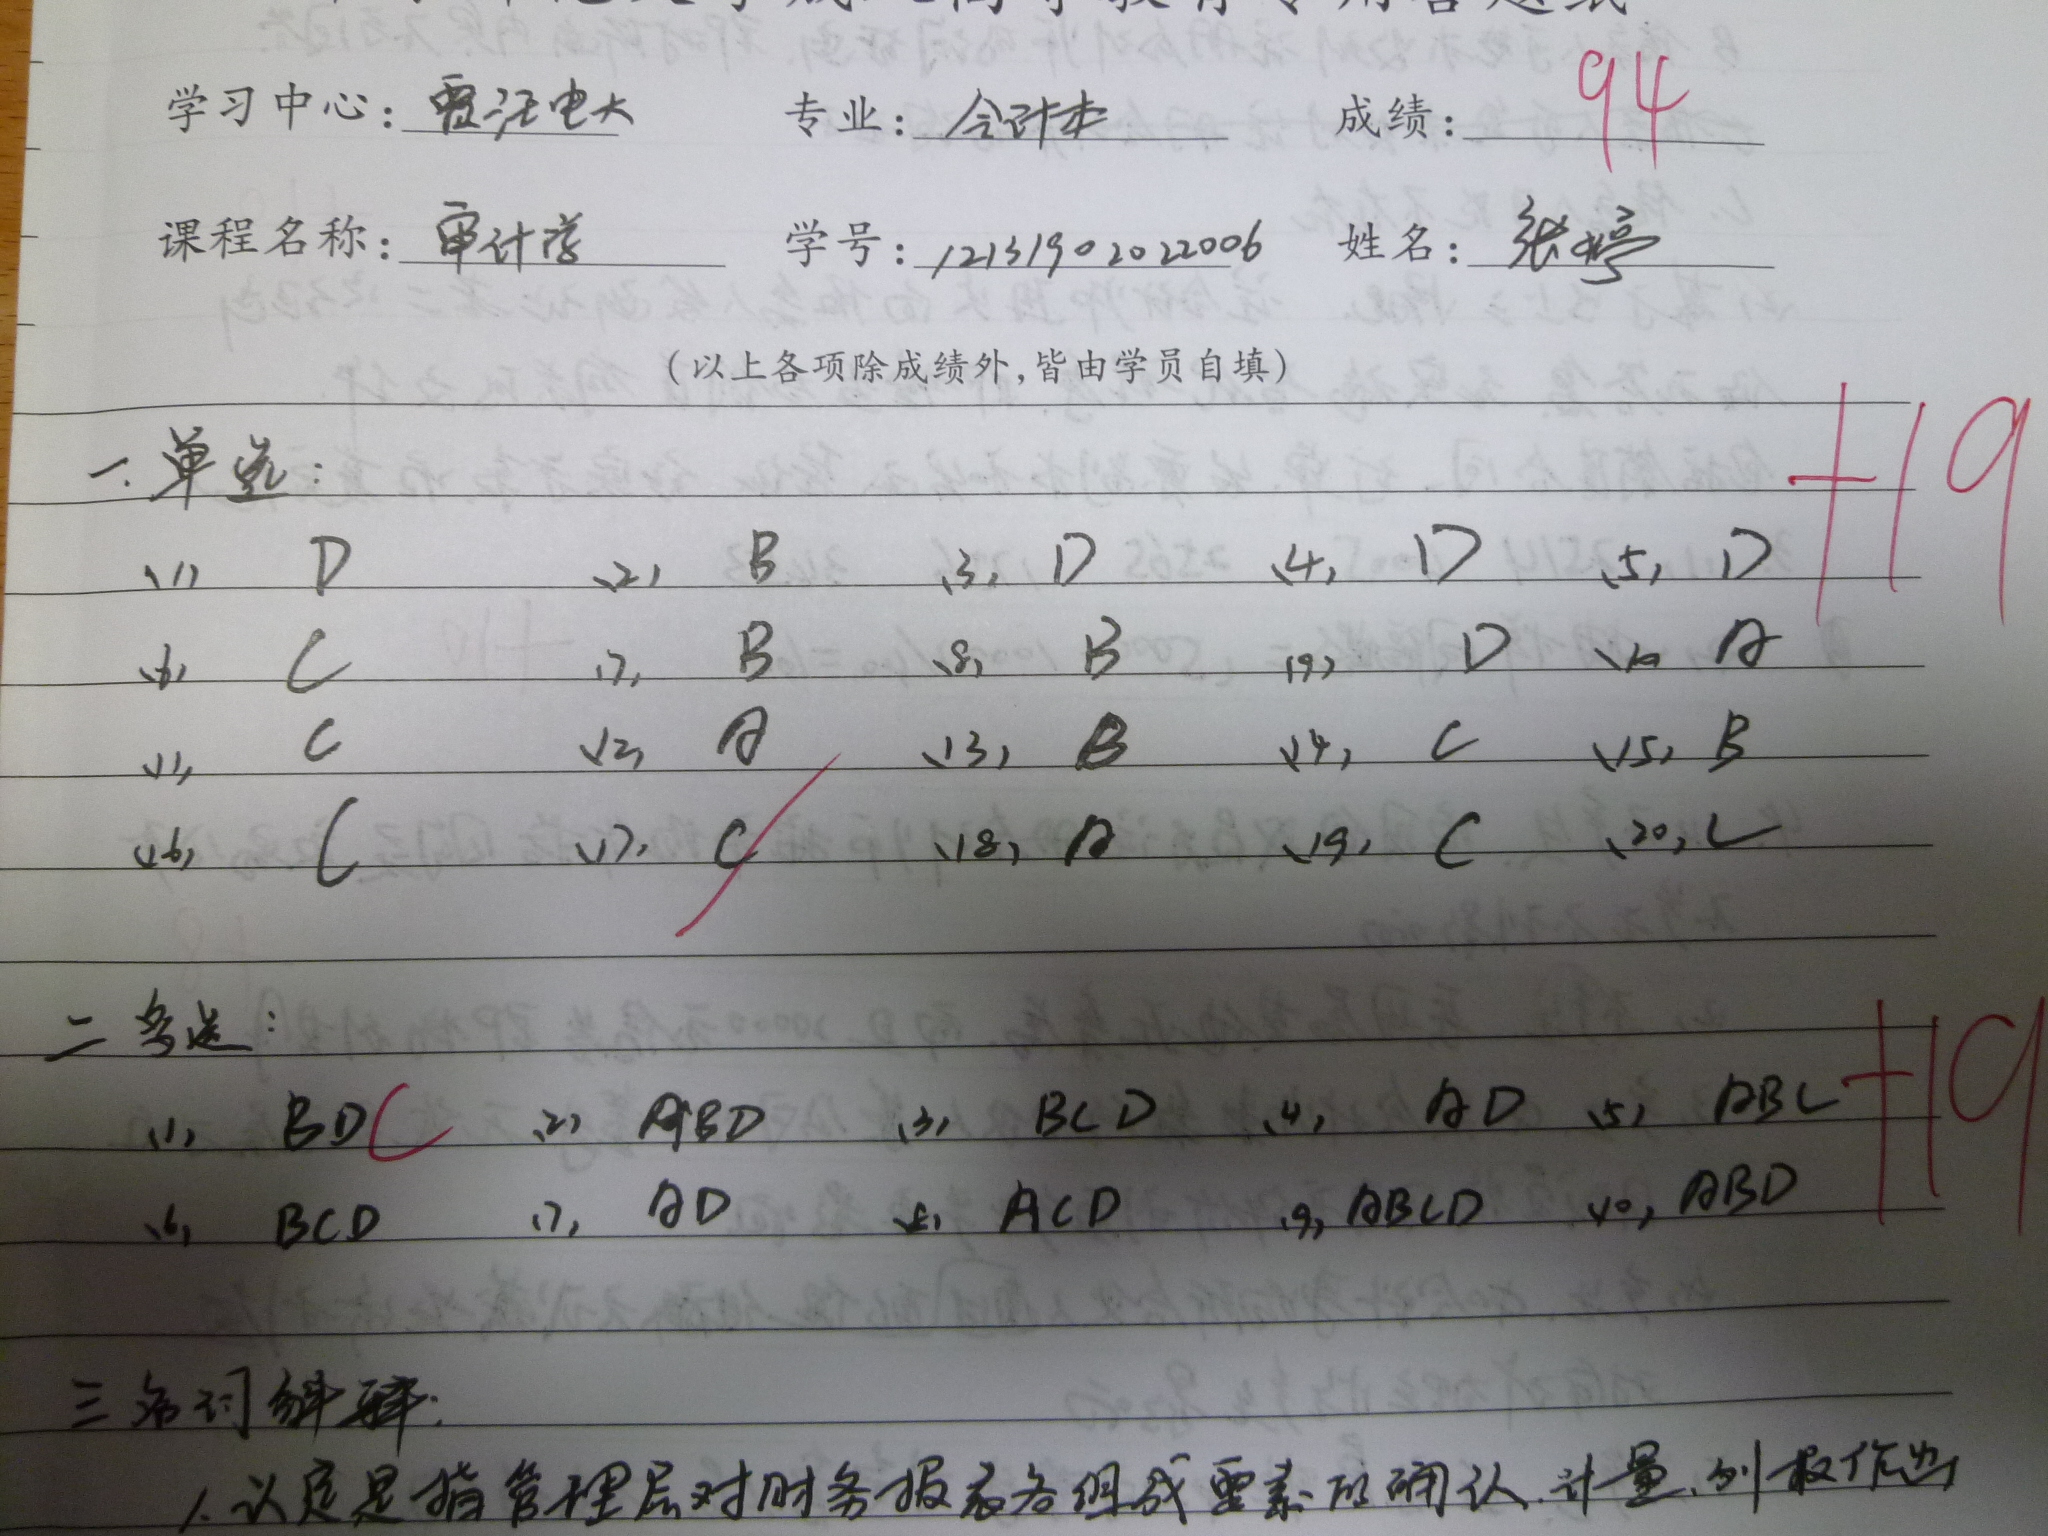 学习中心: 贾汪电大 专业: 会计本 成绩: 94
课程名称: 审计学 学号: 12131902022006 姓名: 张婷
(以上各项除成绩外,皆由学员自填)
一、单选: +19
(1) D (2) B (3) D (4) D (5) D
(6) C (7) B (8) B (9) D (10) A
(11) C (12) A (13) B (14) C (15) B
(16) C (17) C (18) A (19) C (20) C
二 多选: +19
(1) BDC (2) ABD (3) BCD (4) AD (5) ABC
(6) BCD (7) AD (8) ACD (9) ABCD (10) ABD
三 名词解释:
1. 认定是指管理层对财务报表各组成要素的确认、计量、列报作出